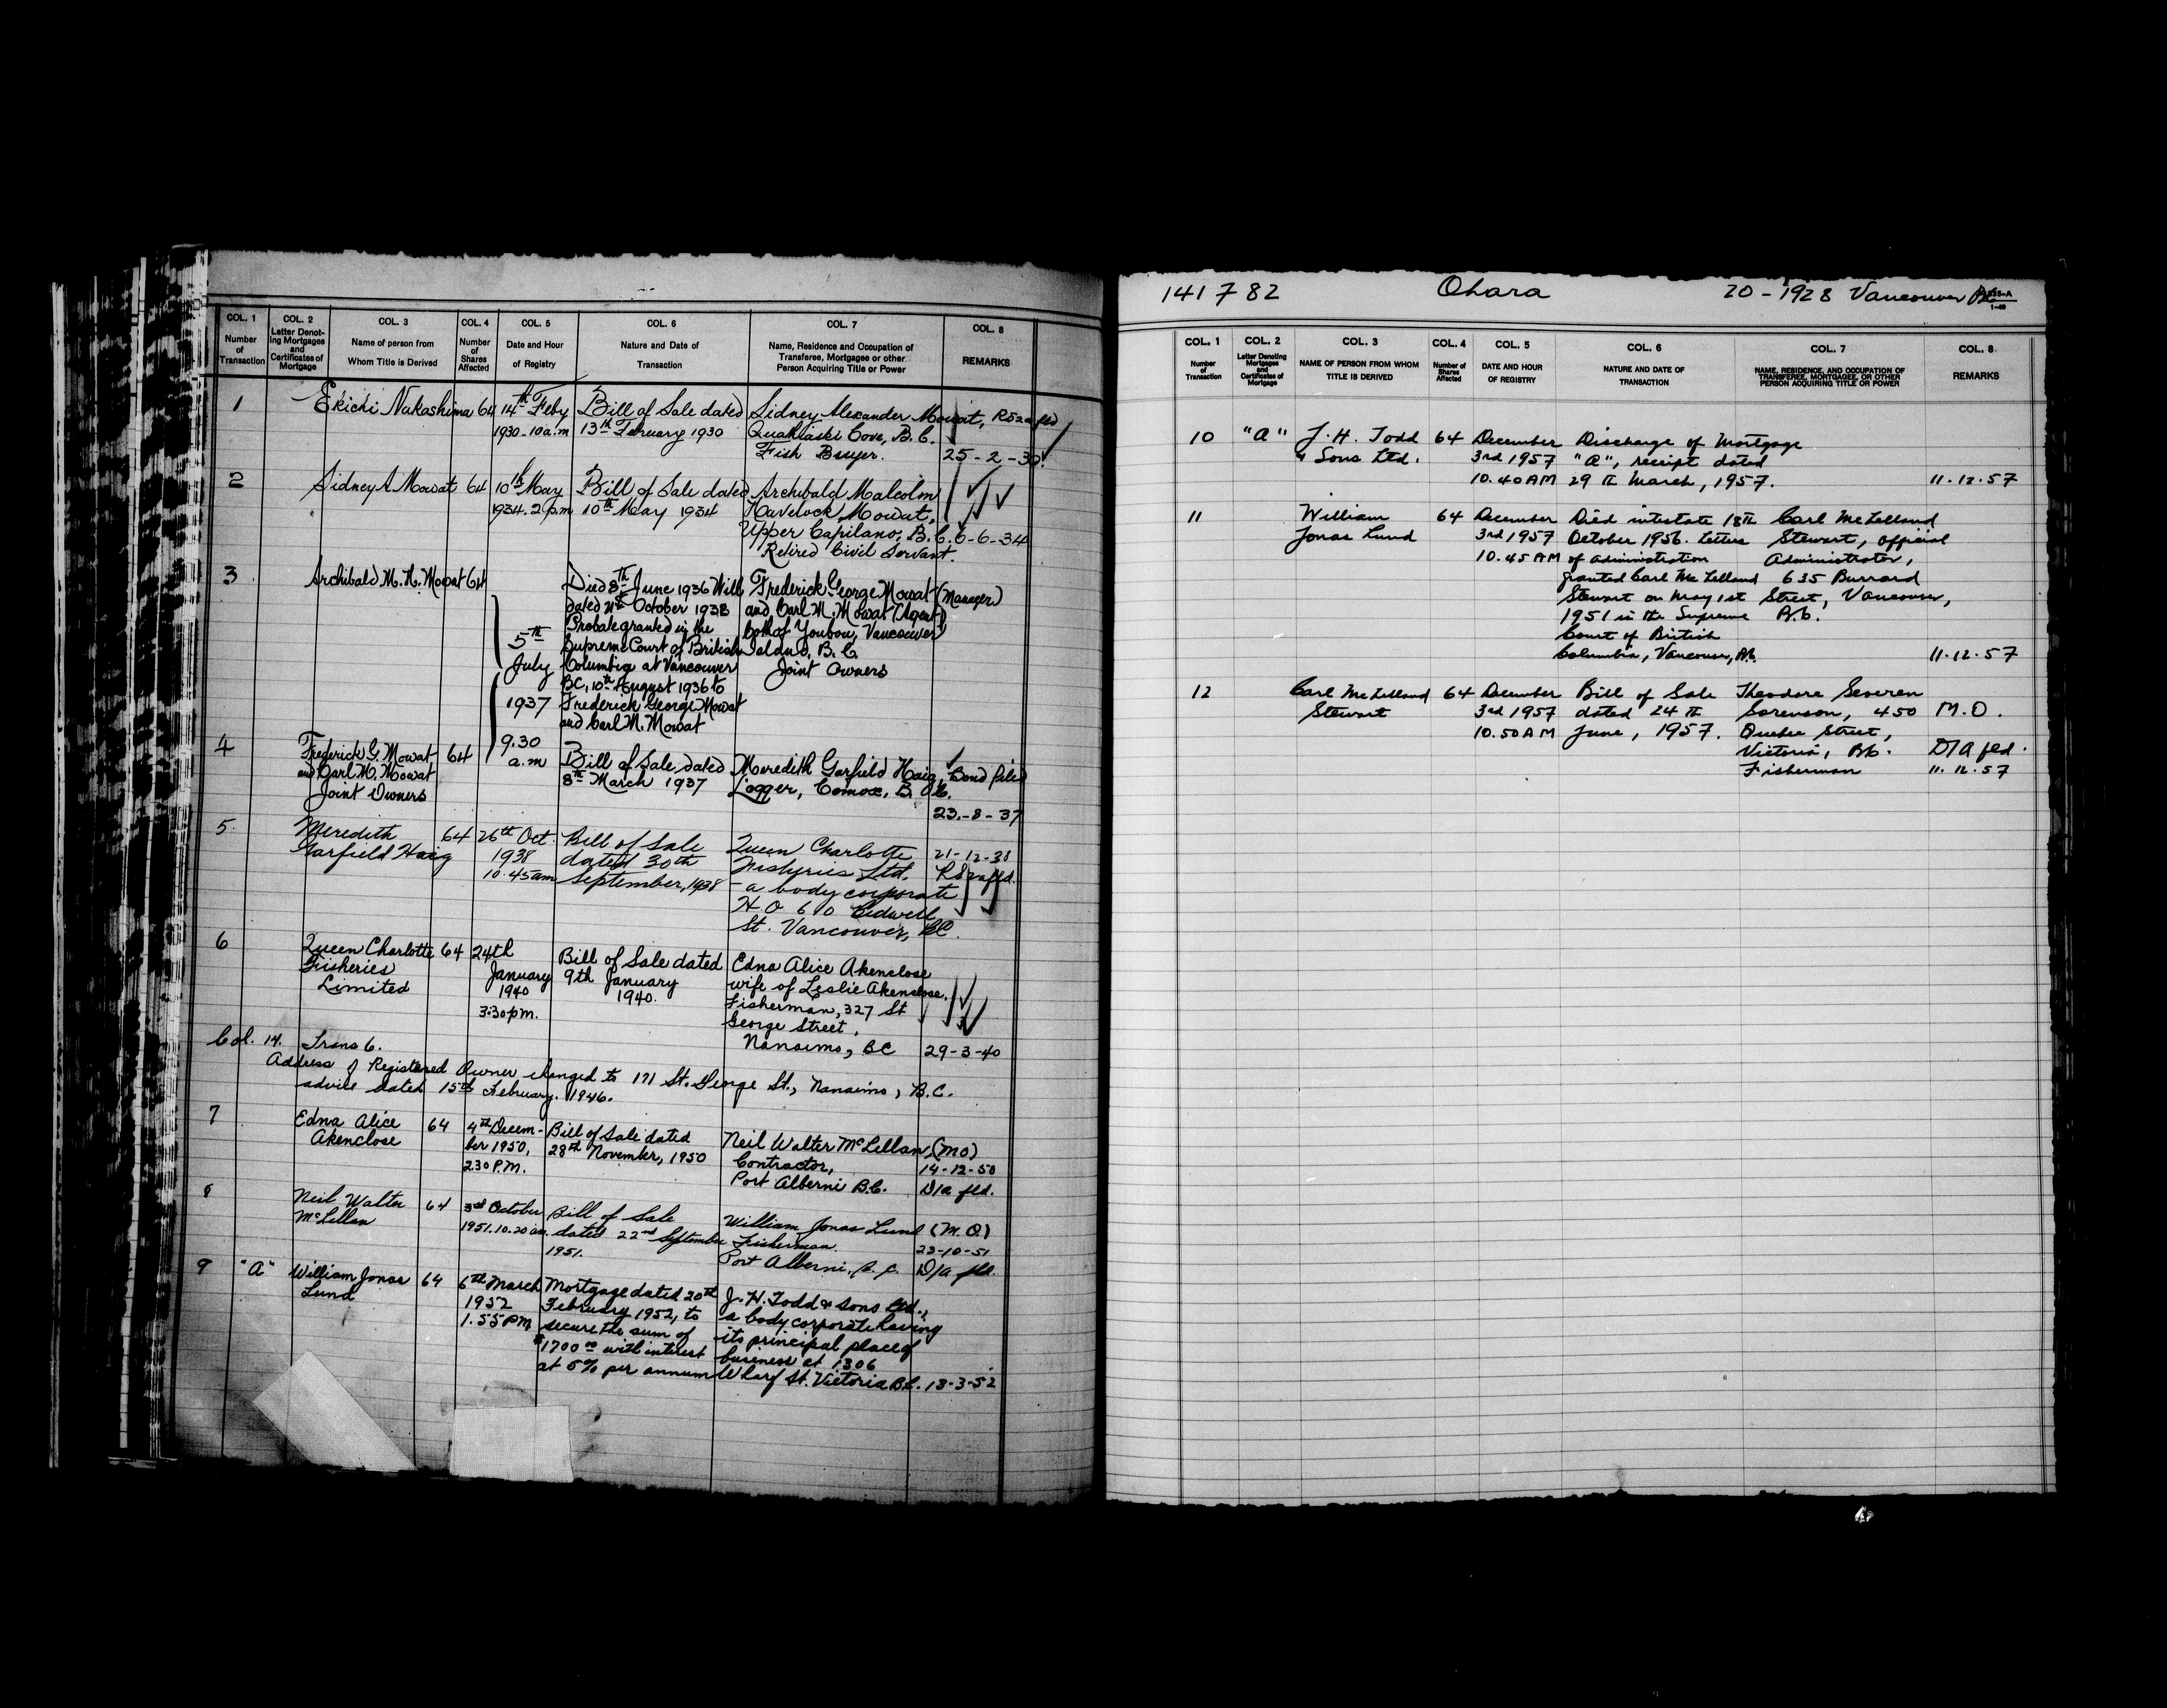 COL. 1 COL. 2 COL. 3 COL. 4 COL. 5 COL. 6 COL. 7 COL. 8
Number of Transaction
Letter Denoting Mortgages and Certificates of Mortgage
Name of person from Whom Title is Derived
Number of Shares Affected
Date and Hour of Registry
Nature and Date of Transaction
Name, Residence and Occupation of Transferee, Mortgagee or other Person Acquiring Title or Power
REMARKS
1 Ekichi Nakashima 64 14th Feby Bill of Sale dated Sidney Alexander Mowat, fld
1930-10 a.m 13th February 1930 Quathiaski Cove, B.C.
Fish Buyer. 25-2-30.
2 Sidney A Mowat 64 10th May Bill of Sale dated Archibald Malcolm
1934. 2 p.m 10th May 1934 Havelock Mowat,
Upper Capilano, B.C. 6-6-34
Retired Civil Servant.
3 Archibald M. H. Mowat 64 Died 8th June 1936 Will Frederick George Mowat (Manager)
dated October 1933 and Carl M. Mowat (Agent)
Probate granted in the both of Youbou, Vancouver
5th Supreme Court of British Island, B.C.
July Columbia at Vancouver Joint Owners
BC, 10th August 1936 to
1937 Frederick George Mowat
and Carl M. Mowat
4 Frederick G. Mowat 64 9.30 a.m Bill of Sale, dated Meredith Garfield Haig, Bond filed
and Carl M. Mowat 8th March 1937 Logger, Comox, B.C.
Joint Owners
23.-8-37
5. Meredith 64 26th Oct. Bill of Sale Queen Charlotte 21-12-38
Garfield Haig 1938 dated 30th Fisheries Ltd. fld.
10.45 am September, 1938 - a body corporate
H.O. 610 Bidwell
St. Vancouver, BC.
6 Queen Charlotte 64 24th Bill of Sale dated Edna Alice Akenclose
Fisheries January 9th January wife of Leslie Akenclose.
Limited 1940 1940. Fisherman, 327 St
3.30 pm. George Street,
Nanaimo, BC 29-3-40
Col. 14. Trans 6.
Address of Registered Owner changed to 171 St. George St., Nanaimo, B.C.
advice dated 15th February. 1946.
7 Edna Alice 64 4th Decem- Bill of Sale dated Neil Walter McLellan, (MO)
Akenclose ber 1950, 28th November, 1950 Contractor, 14-12-50
2.30 P.M. Port Alberni B.C. D/a fld.
8 Neil Walter 64 3rd October Bill of Sale William Jonas Lund (M.O.)
McLellan 1951. 10.20 am. dated 22nd September Fisherman. 23-10-51
1951. Port Alberni, B.C. D/a fld.
9 "A" William Jonas 64 6th March Mortgage dated 20th J. H. Todd & Sons Ltd.,
Lund 1952 February 1952, to a body corporate having
1.55 PM secure the sum of its principal place of
$1700 00 with interest business at 1306
at 5% per annum Wharf St. Victoria B.C. 13-3-52
141782 Ohara 20-1928 Vancouver BC
1-49
COL. 1 COL. 2 COL. 3 COL. 4 COL. 5 COL. 6 COL. 7 COL. 8
Number of Transaction
Letter Denoting Mortgages and Certificates of Mortgage
NAME OF PERSON FROM WHOM TITLE IS DERIVED
Number of Shares Affected
DATE AND HOUR OF REGISTRY
NATURE AND DATE OF TRANSACTION
NAME, RESIDENCE, AND OCCUPATION OF TRANSFEREE, MORTGAGEE, OR OTHER PERSON ACQUIRING TITLE OR POWER
REMARKS
10 "A" J. H. Todd 64 December Discharge of Mortgage
& Sons Ltd. 3rd 1957 "A", receipt dated
10.40 AM 29th March, 1957. 11.12.57
11 William 64 December Died intestate 18th Carl McLelland
Jonas Lund 3rd 1957 October 1956. Letters Stewart, official
10.45 AM of administration Administrator,
granted Carl McLelland 635 Burrard
Stewart on May 1st Street, Vancouver,
1951 in the Supreme B.C.
Court of British
Columbia, Vancouver, B.C. 11.12.57
12 Carl McLelland 64 December Bill of Sale Theodore Severen
Stewart 3rd 1957 dated 24th Sorenson, 450 M.O.
10.50 AM June, 1957. Quebec Street,
Victoria, B.C. D/A fld.
Fisherman 11.12.57